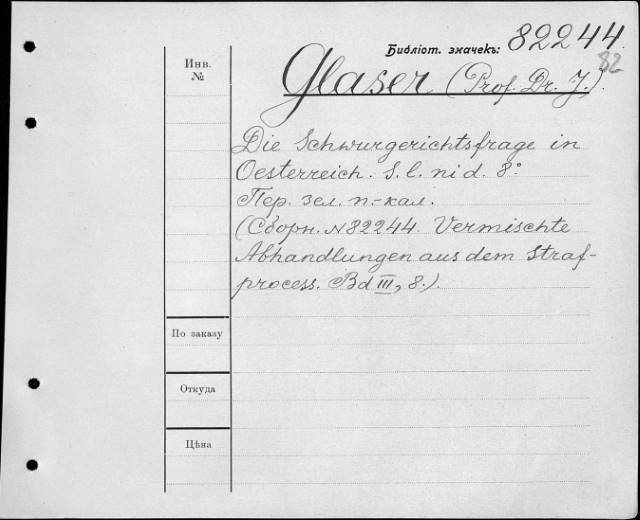 Библіот. значекъ: 82244.
82
Инв.
№
Glaser (Prof. Dr. J.).
Die Schwurgerichtsfrage in
Oesterreich. S. l. ni d. 8°
Пер. зел. п.-кал.
(Сборн. №82244. Vermischte
Abhandlungen aus dem Straf-
process. Bd III, 8.).
По заказу
Откуда
Цѣна